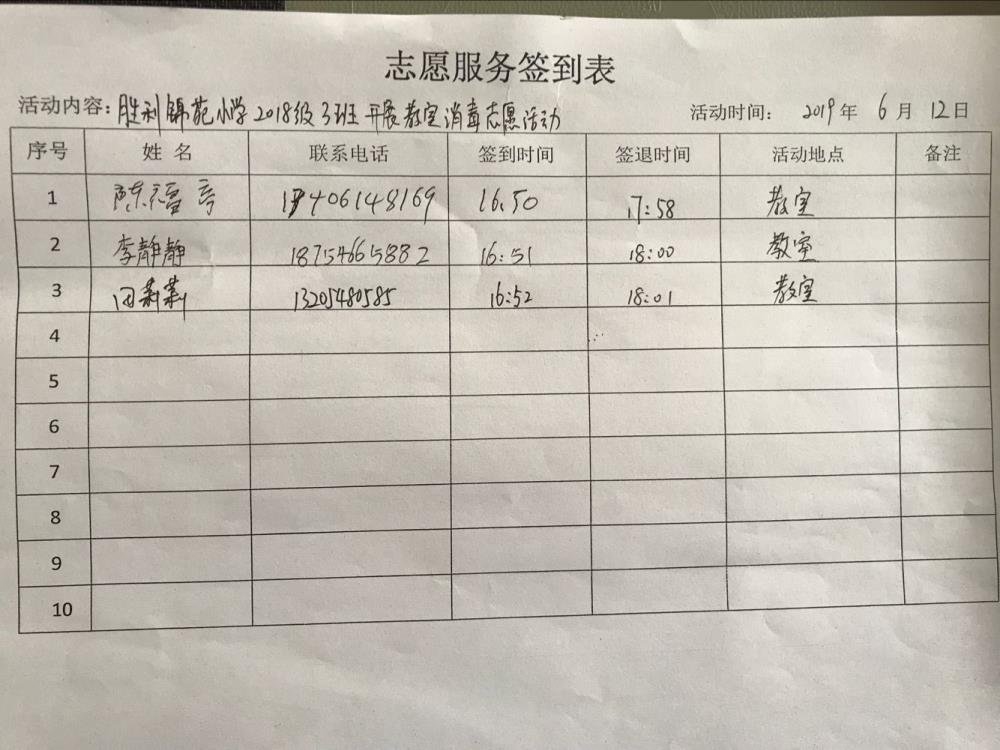 志愿服务签到表
活动内容：胜利锦苑小学2018级3班开展教室消毒志愿活动 活动时间： 2019年 6月 12日
序号 姓名 联系电话 签到时间 签退时间 活动地点 备注
1 陈 16:50 17:58 教室
2 李静静 18754665882 16:51 18:00 教室
3 田莉莉 13205480585 16:52 18:01 教室
4
5
6
7
8
9
10